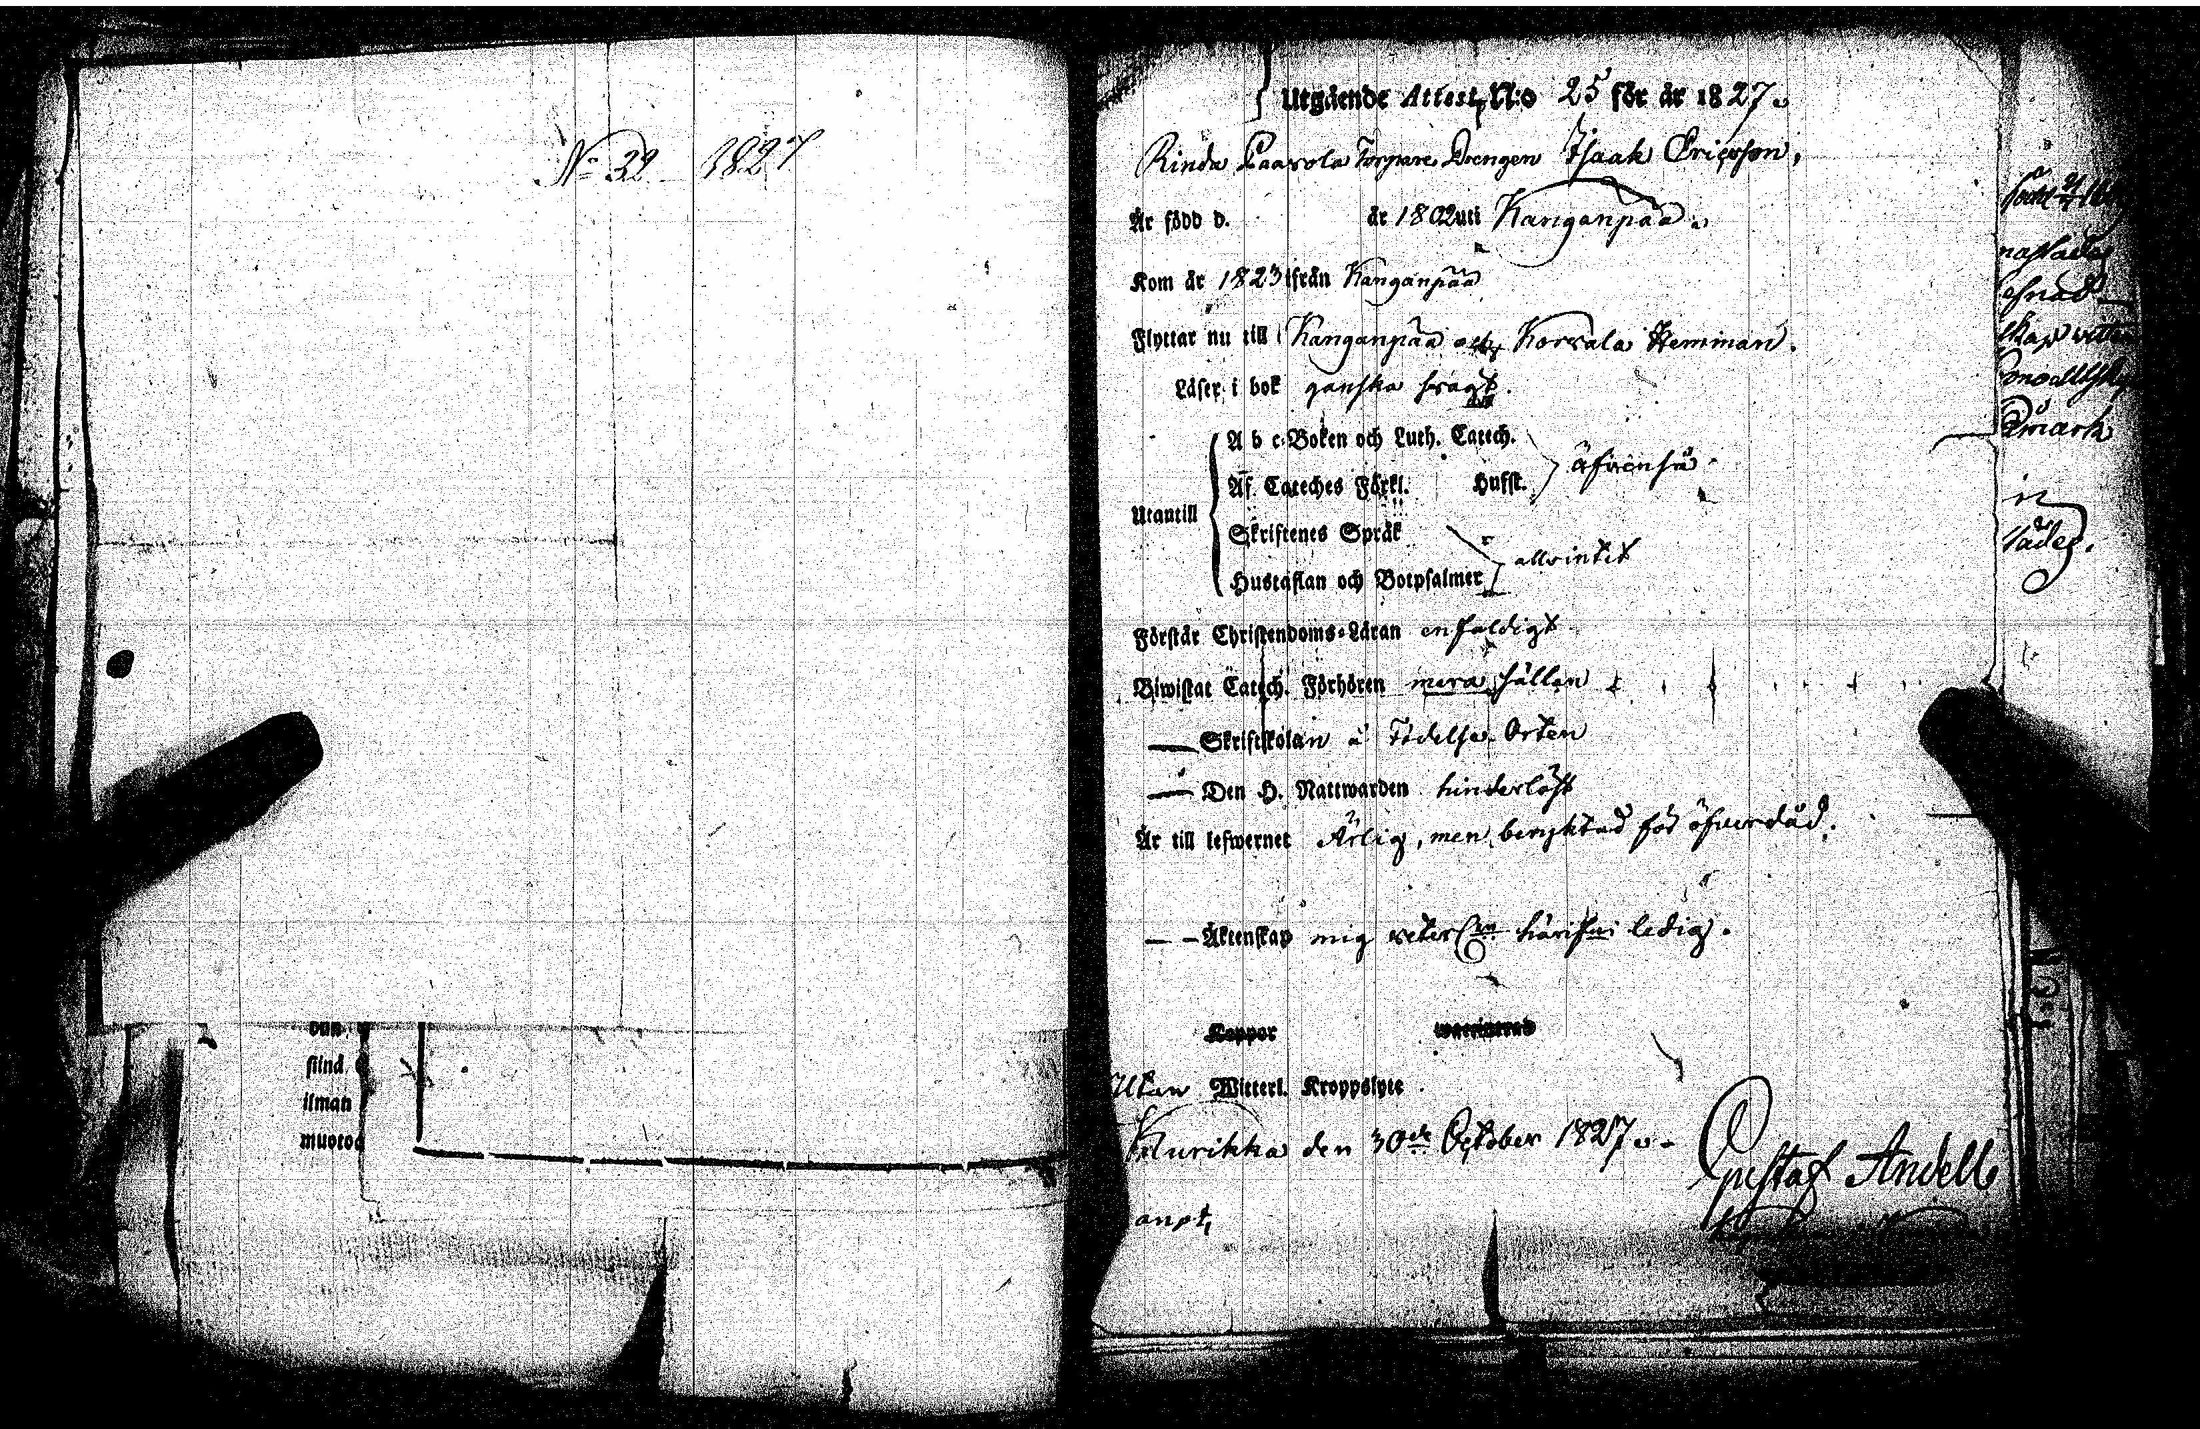 No 32 1827
siind
ilman
muotoa
Utgående Attest, N:o 25 för år 1827.
Rinda Laavola Torpare Drengen Isaak Ericsson,
Är född d. år 1802 uti Kanganpää.
Kom år 1823 ifrån Kanganpää
Flyttar nu till Kanganpää och Korvala Hemman.
Läser i bok ganska svagt.
A b c-Boken och Luth. Catech.
Af Cateches Förkl. Hufst. äfvenså
Utantill
Skriftenes Språk
allsintet
Hustaflan och Botpsalmer
Förstår Christendoms-Läran enfaldigt
Biwistat Catech. Förhören mera sällan
Skriftskolan å Födelse-Orten
Den H. Nattwarden hinderlöst
Är till lefwernet Ärlig, men beryktad för öfverdåd.
Äktenskap mig veterl. härifrån ledig.
Koppor
Utan Witterl. Kroppslyte
Ilmrikka den 30de October 1827.
Gustaf Andell
anpt,